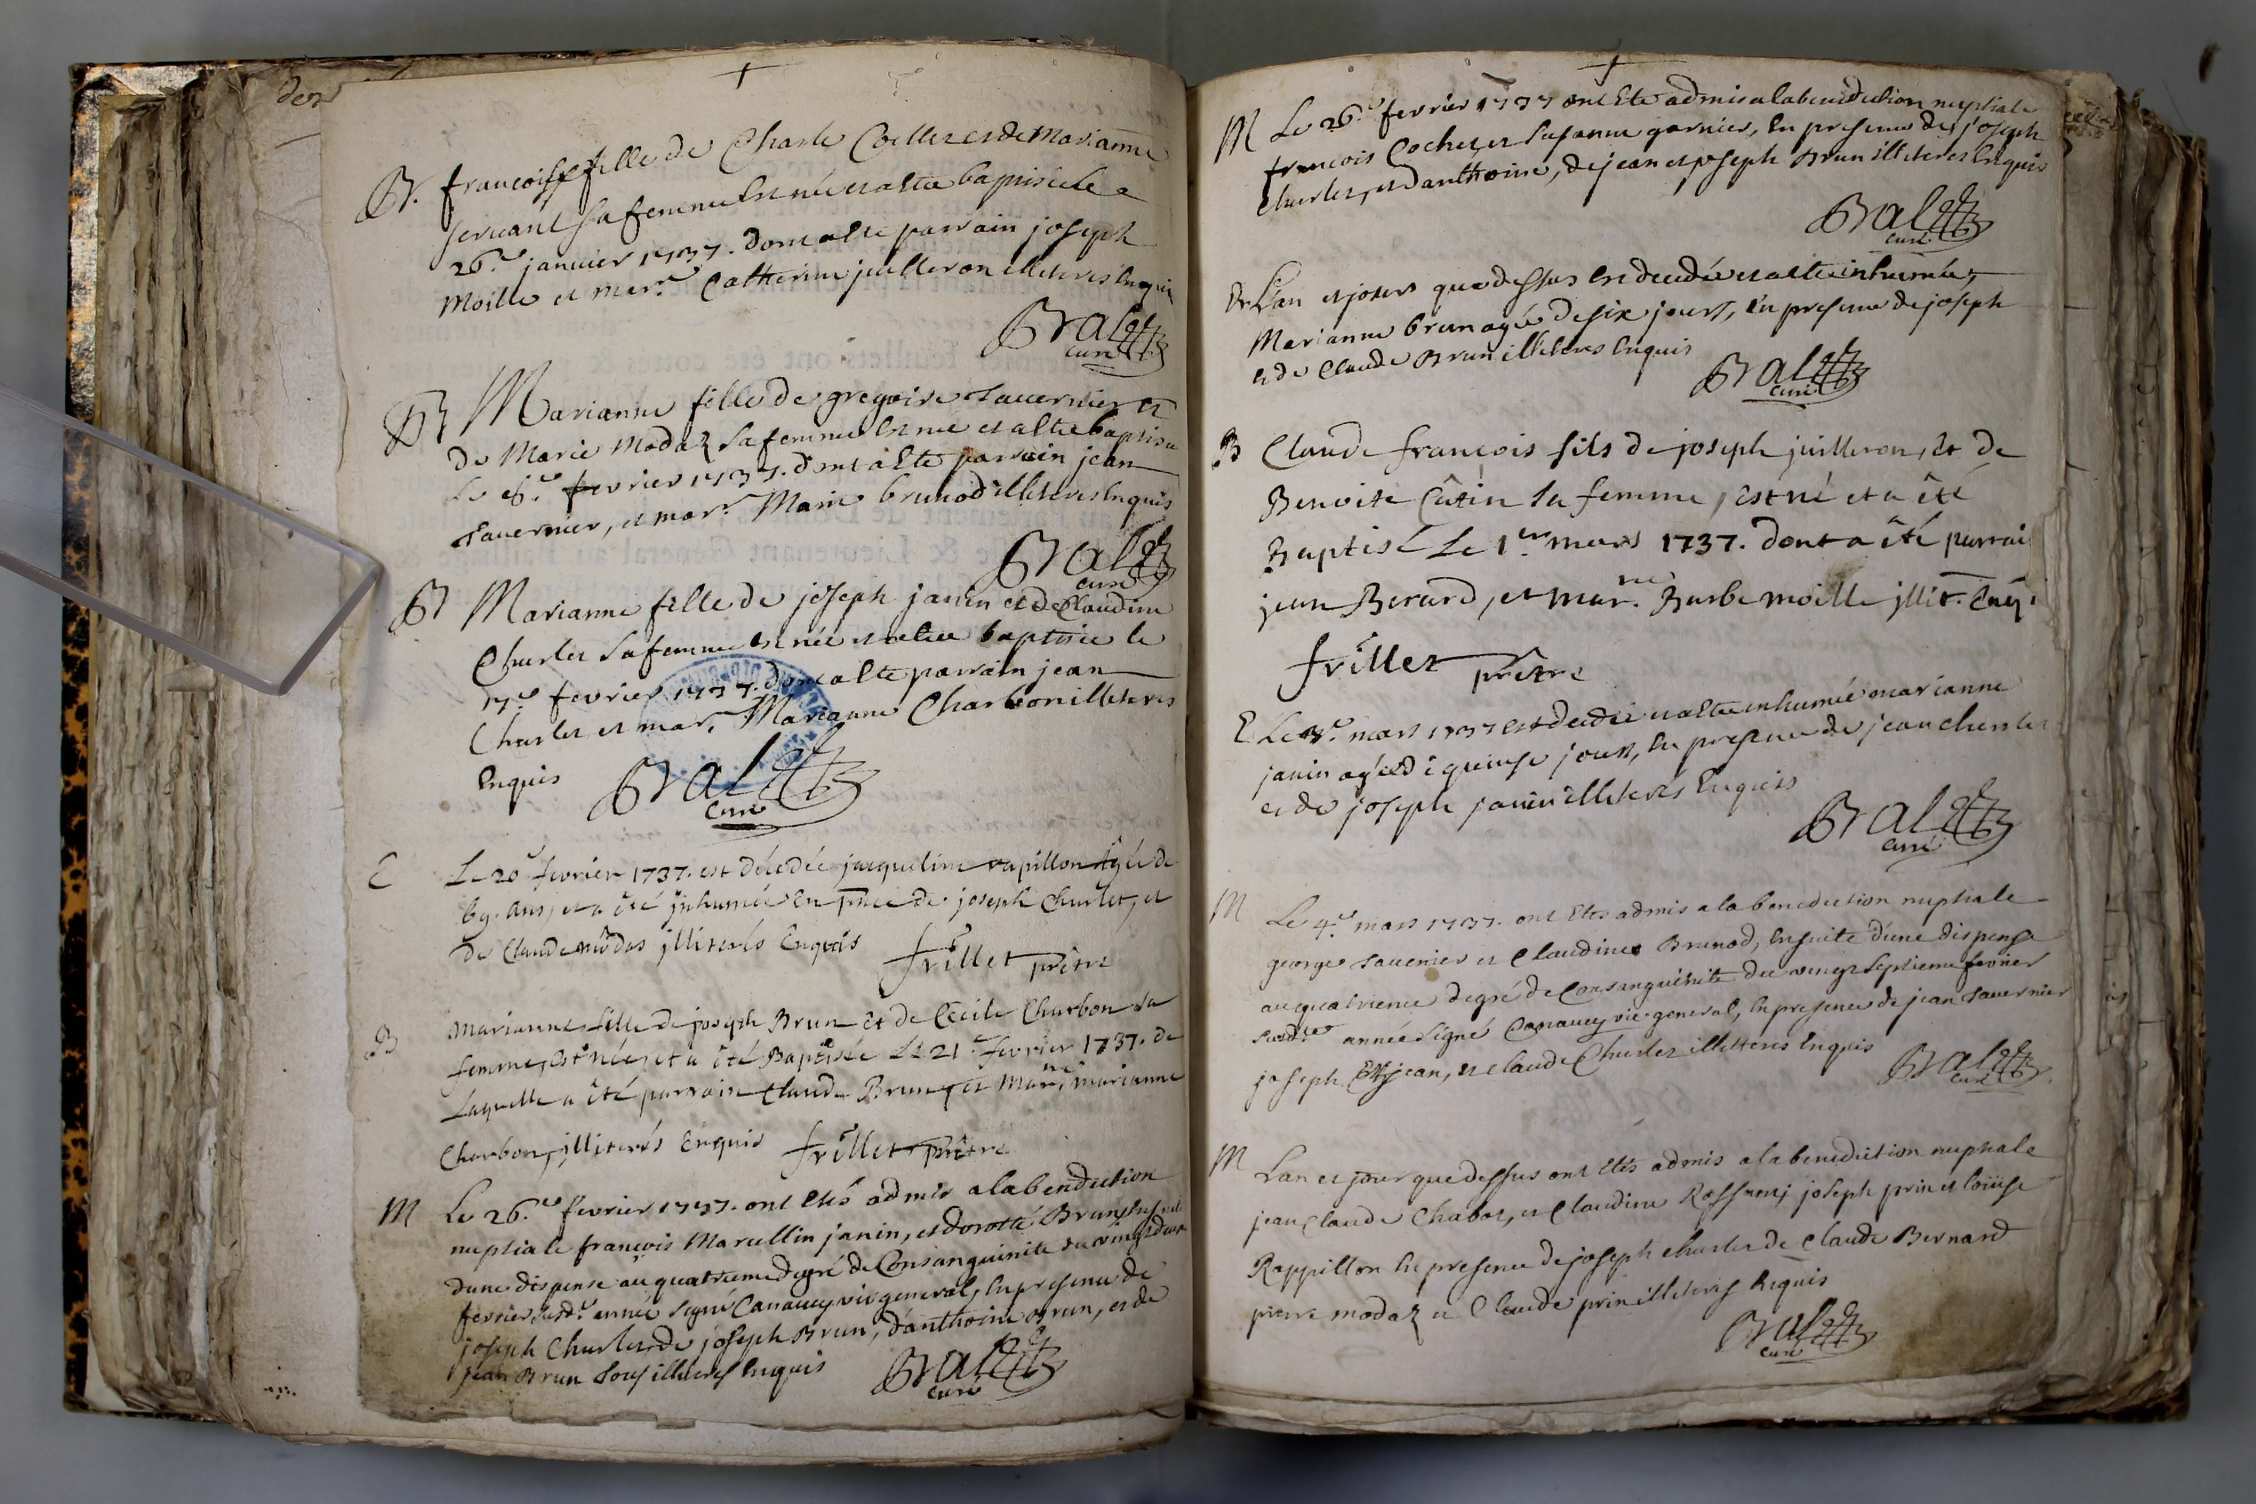 B. francoise fille de Charle Collet et de Marianne
servant sa femme est née et a été baptisée le
26.e janvier 1737. dont a été parrain joseph
Moille et marr.e Catherine juilleron illiteres enquis
Bral
curé
B Marianne fille de gregoire Tavernier et
de Marie Modaz sa femme est née et a été baptisée
Le fevrier 1737. dont a été parrain jean
Tavernier, et marr.e Marie brunod illiteres enquis
Bral
curé
B Marianne fille de joseph janin et de Claudine
Charlet sa femme est née et a été baptisée le
17.e fevrier 1737. dont a été parrain jean
Charlet et mar.e Marianne Charbon illiteres
enquis Bral
curé
E Le 20 fevrier 1737. est décédée jacqueline rapillon âgée de
69. ans, et a été inhumée en pñce de joseph Charlet, et
de Claude modas illiterés Enquis
frillet prêtre
B Marianne fille de joseph Brun et de Cecile Charbon sa
femme, est née, et a été Baptisée Le 21.e fevrier 1737. de
Laquelle a été parrain Claude Brun, et Marr.ne marianne
Charbon, illiterés Enquis frillet prêtre
M Le 26.e fevrier 1737. ont etés admis a la benediction
nuptiale francois Marcellin janin, et dorotté Brun,
dune dispense au quatrieme degré de Consanguinite du vingt deux
fevrier susd.e année signé Canauey vic general, en presence de
joseph Charlet, de joseph Brun, d'anthoine Brun, et de
jean Brun tous illiteres enquis Bral
curé
M Le 26.e fevrier 1737 ont été admis a la benediction nuptiale
francois Cochet et Susanne garnier, en presence de joseph
Charlet, et d'anthoine, de jean et joseph Brun illiteres enquis
Bral
curé
L'an et jours que dessus est decedée et a été inhumée
Marianne brun agée de six jours, en presence de joseph
et de Claude Brun illiteres enquis
Bral
curé
B Claude françois fils de joseph juilleron, et de
Benoite Câtin sa femme, est né et a été
Baptisé Le 1.er mars 1737. dont a été parrai
jean Berard, et mar.ne Barbe moille illit. Enq.
frillet prêtre
E Le 3.e mars 1737 est decedée et a été inhumée marianne
janin agée de quinse jours, en presence de jean charlet
et de joseph janin illiterés Enquis
Bral
curé
M Le 4.e mars 1737. ont etés admis a la benediction nuptiale
george Tavernier et Claudine Brunod, ensuite d'une dispense
au quatrieme degré de Consanguinité du vingt septieme fevrier
susd.te année signé Canauey vic general, en presence de jean Tavernier
joseph, jean, et claude Charlet illitteres enquis Bral
curé
M L'an et jour que dessus ont etés admis a la benediction nuptiale
jean Claude Chabot, et Claudine joseph prin et loüise
Rappillon en presence de joseph charlet de Claude Bernard
pierre modaz et Claude prin illiteres enquis
Bral
curé